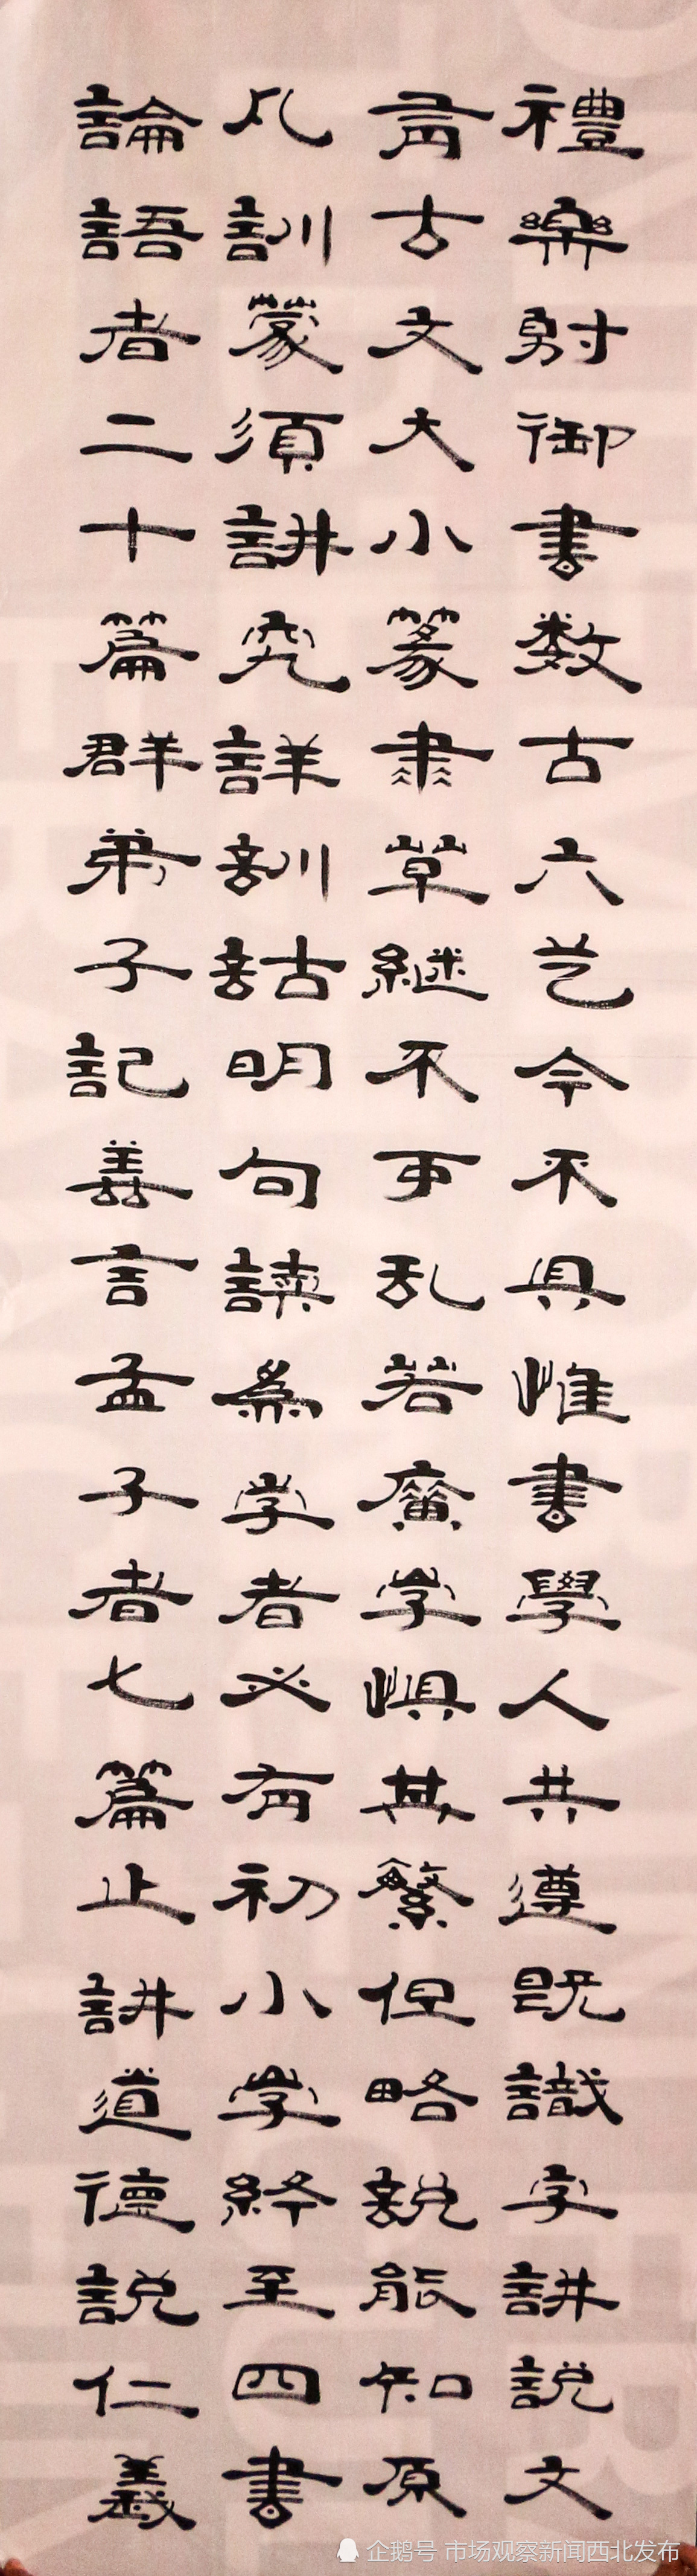 禮樂射御書数古六艺今不具惟書學人共遵既識字讲說文
有古文大小篆隶草继不可乱若廣学惧其繁但略說能知原
凡訓蒙須講究詳訓詁明句讀為学者必有初小学终至四書
論語者二十篇群弟子記善言孟子者七篇止講道德說仁義
企鹅号 市场观察新闻西北发布